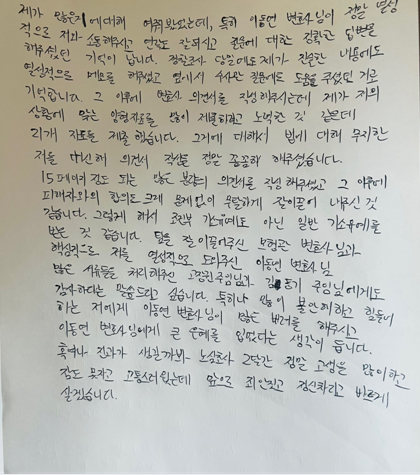 제가 많은것에대해 여쭤봤었는데, 특히 이동연 변호사님이 정말 열성
적으로 저와 소통해주시고 연락도 잘되시고 질문에 대한 정확한 답변을
해주셨던 기억이 납니다. 경찰조사 당일에도 제가 진술한 내용에도
열성적으로 메모를 해주셨고 옆에서 수사관 질문에도 도움을 주셨던 거로
기억합니다. 그 이후에 변호사 의견서를 작성해주시는데 제가 저의
상황에 맞는 양형자료를 많이 제출하려고 노력한 것 같은데
21개 자료를 제출했습니다. 그거에 대해서 법에 대해 무지한
저를 대신해 의견서 작성을 정말 꼼꼼히 해주셨습니다.
15페이지 정도 되는 많은 분량의 의견서를 작성해주셨고 그 이후에
피해자와의 합의도 크게 문제없이 원활하게 잘이끌어 내주신 것
같습니다. 그렇게 해서 조건부 기소유예도 아닌 일반 기소유예를
받은 것 같습니다. 팀을 잘 이끌어주신 변호사님과
핵심적으로 저를 열성적으로 도와주신 이동연 변호사님
많은 서류들을 처리해주신 주임님과 주임님에게도
감사하다는 말씀드리고 싶습니다. 특히나 많이 불안해하고 힘들어
하는 저에게 이동연 변호사님이 많은 배려를 해주시고
이동연 변호사님에게 큰 은혜를 입었다는 생각이 듭니다.
혹여나 전과가 생길까봐 노심초사 2달간 정말 고생을 많이하고
잠도 못자고 고통스러웠는데 앞으로 죄안짓고 정신차리고 바르게
살겠습니다.